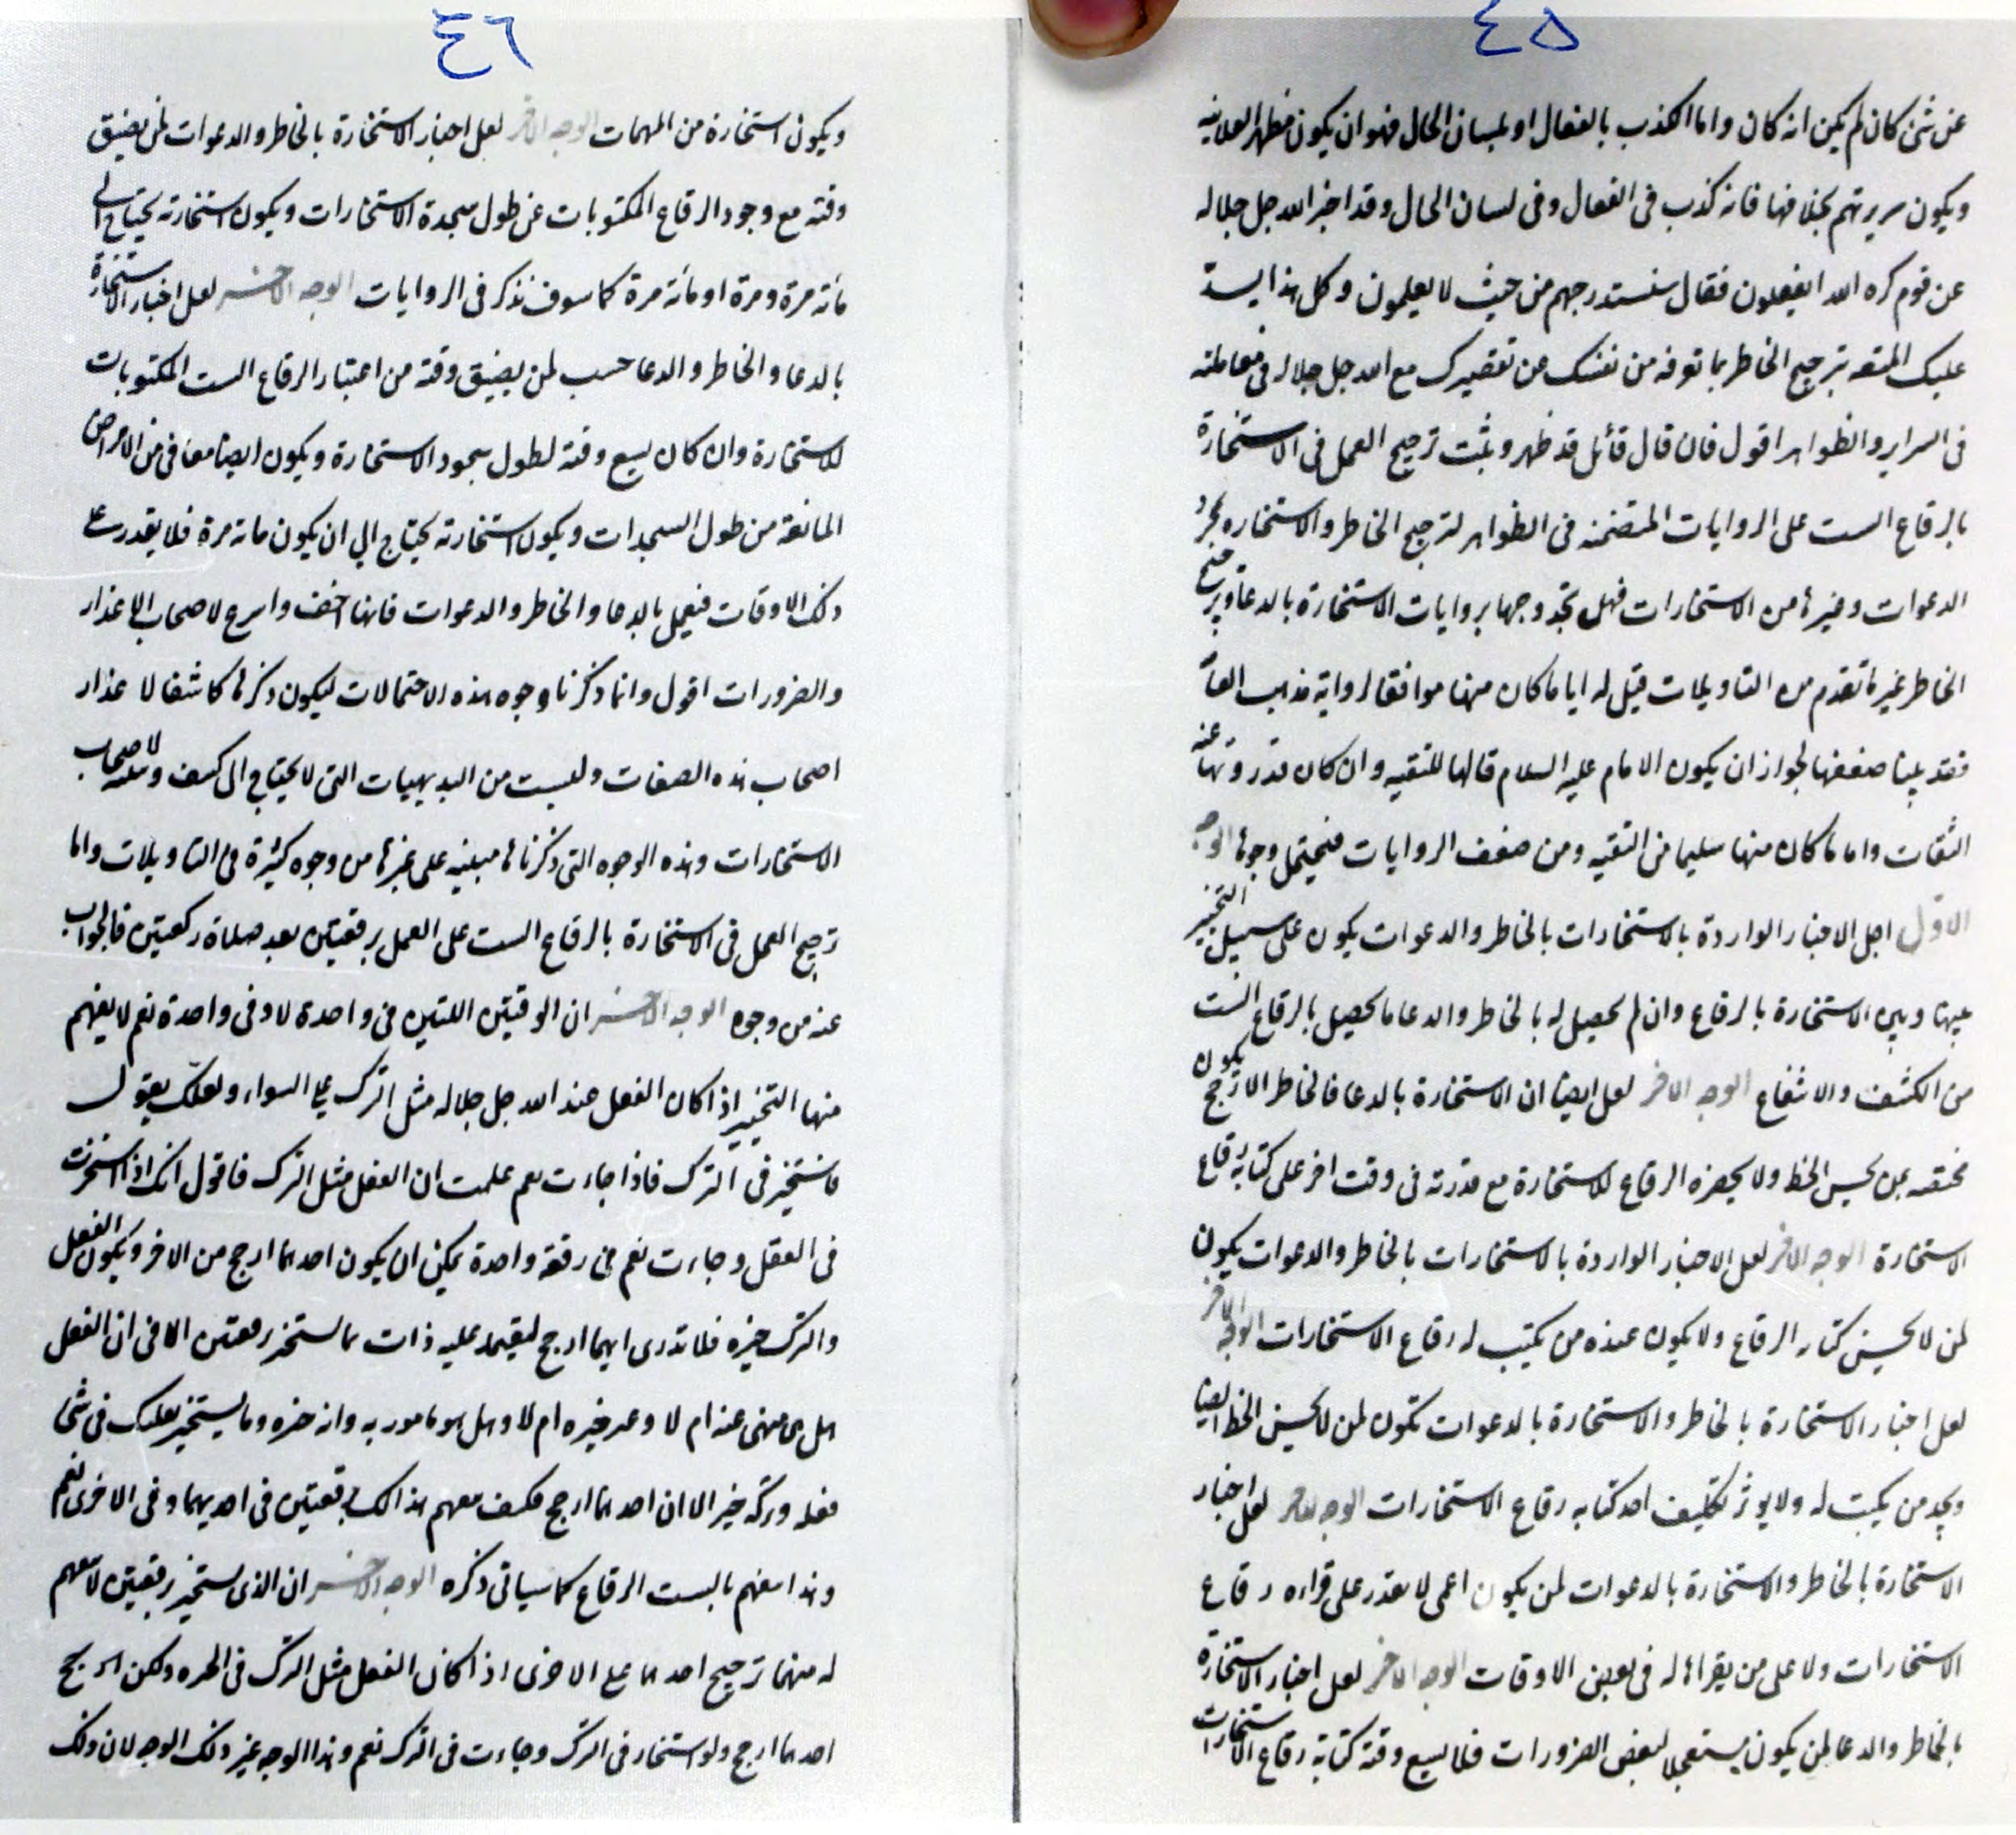 ٤٥
عن شئ كان لم يكن انه كان واما الكذب بالفعال او بلسان الحال فهو ان يكون مظهر العلانيه
ويكون سريرتهم بخلافها فانه كذب فى الفعال وفى لسان الحال وقد اخبر الله جل جلاله
عن قوم كره الله ايفعلون فقال سنستدرجهم من حيث لا يعلمون وكل هذا يسدّ
عليك الثقه بترجيح الخاطر بما تعرفه من نفسك من تقصيرك مع الله جل جلاله فى معاملته
فى السراير والظواهر اقول فان قال قائل قد ظهر وثبت ترجيح العمل فى الاستخارة
بالرقاع الست على الروايات المتضمنه فى الظواهر لترجيح الخاطر والاستخاره بمجرد
الدعوات وغيرها من الاستخارات فهل تجد وجها بروايات الاستخارة بالدعا وبترجيح
الخاطر غير ما تقدم من التاويلات قيل له اما ما كان منها موافقا لرواية مذهب العامّة
فقد بينا ضعفها لجواز ان يكون الامام عليه السلام قالها للتقيه وان كان قد روتها عنه
الثقات واما ما كان منها سليما من التقيه ومن ضعف الروايات فيحتمل وجوها الوجه
الاول اجل الاخبار الواردة بالاستخارات بالخاطر والدعوات يكون على سبيل التخيير
بينها وبين الاستخارة بالرقاع وان لم يحصل له بالخاطر والدعا ما يحصل بالرقاع الست
من الكشف والانتفاع الوجه الاخر لعل ايضا ان الاستخارة بالدعا فالخاطر الارجح يكون
مختصه بمن يحسن الخط ولا يحضره الرقاع للاستخارة مع قدرته فى وقت اخر على كتابه رقاع
الاستخارة الوجه الاخر لعل الاخبار الواردة بالاستخارات بالخاطر والدعوات يكون
لمن لا يحسن كتابه الرقاع ولا يكون عنده من يكتب له رقاع الاستخارات الوجه الاخر
لعل اخبار الاستخارة بالخاطر والاستخارة بالدعوات تكون لمن لا يحسن الخط ايضا
ويجد من يكتب له ولا يوثر تكليف احد كتابه رقاع الاستخارات الوجه الاخر لعل اخبار
الاستخارة بالخاطر والاستخارة بالدعوات لمن يكون اعمى لا يقدر على قراءه رقاع
الاستخارات ولا على من يقراها له فى بعض الاوقات الوجه الاخر لعل اخبار الاستخارة
بالخاطر والدعا لمن يكون يستعجلا لبعض الضرورات فلا يسع وقته كتابة رقاع الاستخارات
٤٦
ويكون استخارة من المهمات الوجه الاخر لعل اخبار الاستخارة بالخاطر والدعوات لمن يضيق
وقته مع وجود الرقاع المكتوبات عن طول سجدة الاستخارات ويكون استخارته يحتاج الى
مأته مرة ومرة او مأته مرة كما سوف نذكر فى الروايات الوجه الاخر لعل اخبار الاستخارة
بالدعا والخاطر والدعا حسب لمن يضيق وقته من اعتبار الرقاع الست المكتوبات
للاستخارة وان كان يسع وقته لطول سجود الاستخارة ويكون ايضا معافى من الامراض
المانعة من طول السجدات ويكون استخارته يحتاج الي ان يكون ماته مرة فلا يقدر على
ذلك الاوقات فيعمل بالدعا والخاطر والدعوات فانها اخف واسرع لاصحاب الاعذار
والضرورات اقول وانما ذكرنا وجوه هذه الاحتمالات ليكون ذكرها كاشفا لاعذار
اصحاب هذه الصفات وليست من البديهيات التى لا يحتاج الى كشف لاصحاب
الاستخارات وهذه الوجوه التى ذكرناها مبنيه على غيرها من وجوه كثيرة فى التاويلات واما
ترجيح العمل فى الاستخارة بالرقاع الست على العمل برقعتين بعد صلاة ركعتين فالجواب
عنه من وجوه الوجه الاخر ان الرقعتين اللتين فى واحدة لا وفى واحدة نعم لا يفهم
منها التخيير اذا كان الفعل عند الله جل جلاله مثل الترك على السواء ولعلّك يقول
ما نستخير فى الترك فاذا جاءت نعم علمت ان الفعل مثل الترك فاقول انك اذا استخرت
فى الفعل وجاءت نعم فى رقعة واحدة يمكن ان يكون احدهما ارجح من الاخر ويكون الفعل
والترك خيره فلا تدرى ايهما ارجح ليعتمد عليه ذات ما نستخير برقعتين الا فى ان الفعل
هل هى منهى عنه ام لا وخيره ام لا وهل هو مامور به وانه خيره وما يستخير بعلك فى شئ
فعله وتركه خير الا ان احدهما ارجح فكيف يفهم هذا لك برقعتين فى احديهما وفى الاخرى نعم
وهذا يفهم بالست الرقاع كما سياتى ذكره الوجه الاخر ان الذى يستخير برقعتين لا يفهم
له منهما ترجيح احدهما على الاخرى اذا كان الفعل مثل الترك فى الخيره ولكن الارجح
احدهما ارجح ولو استخار فى الترك وجاءت فى الترك نعم وهذا الوجه غير ذلك الوجه لان ذلك